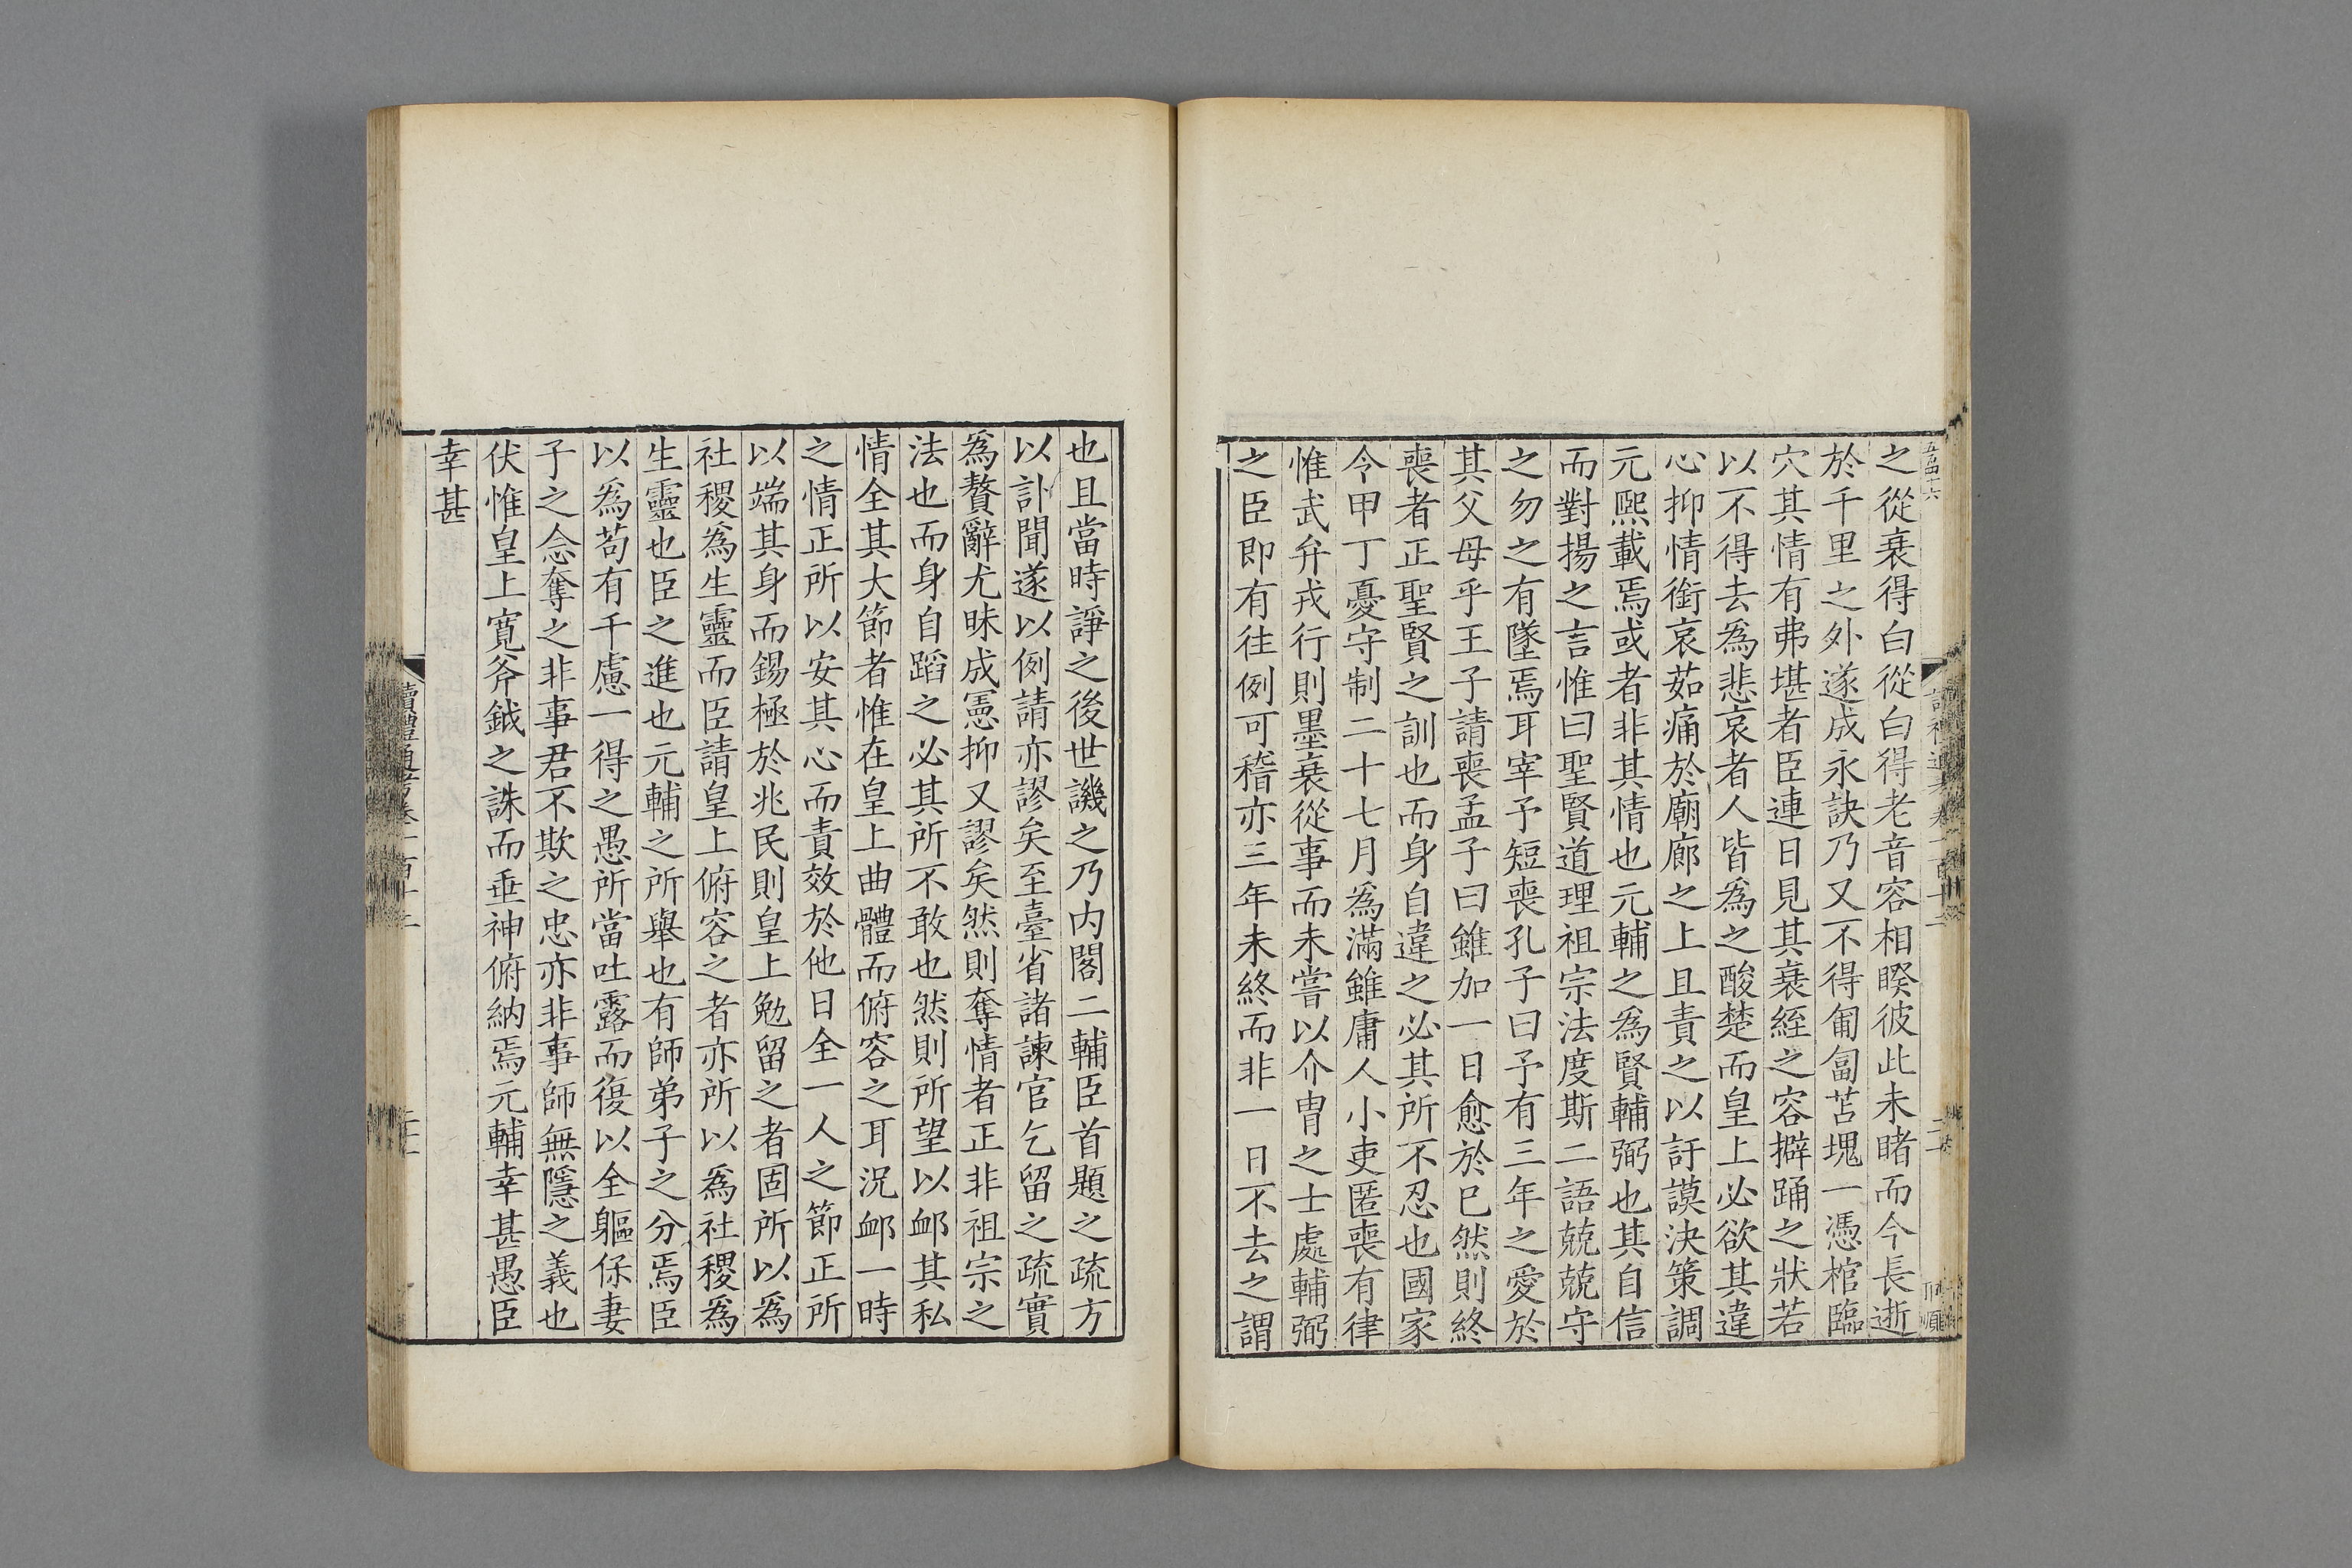 之從衰得白從白得老音容相暌彼此未睹而今長逝
於千里之外遂成永訣乃又不得匍匐苫塊一憑棺臨
穴其情有弗堪者臣連日見其衰絰之容擗踊之狀若
以不得去爲悲哀者人皆爲之酸楚而皇上必欲其違
心抑情銜哀茹痛於廟廊之上且責之以訏謨決策調
元熙載焉或者非其情也元輔之爲賢輔弼也其自信
而對揚之言惟曰聖賢道理祖宗法度斯二語兢兢守
之勿之有墜焉耳宰予短喪孔子曰予有三年之愛於
其父母乎王子請喪孟子曰雖加一日愈於已然則終
喪者正聖賢之訓也而身自違之必其所不忍也國家
令甲丁憂守制二十七月爲滿雖庸人小吏匿喪有律
惟武弁戎行則墨衰從事而未嘗以介冑之士處輔弼
之臣即有往例可稽亦三年未終而非一日不去之謂
也且當時諍之後世譏之乃内閣二輔臣首題之疏方
以訃聞遂以例請亦謬矣至臺省諸諫官乞留之疏實
爲贅辭尤昧成憲抑又謬矣然則奪情者正非祖宗之
法也而身自蹈之必其所不敢也然則所望以䘏其私
情全其大節者惟在皇上曲體而俯容之耳況䘏一時
之情正所以安其心而責效於他日全一人之節正所
以端其身而錫極於兆民則皇上勉留之者固所以為
社稷爲生靈而臣請皇上俯容之者亦所以爲社稷爲
生靈也臣之進也元輔之所舉也有師弟子之分焉臣
以爲苟有千慮一得之愚所當吐露而復以全軀保妻
子之念奪之非事君不欺之忠亦非事師無隱之義也
伏惟皇上寬斧鉞之誅而垂神俯納焉元輔幸甚愚臣
幸甚
讀禮通考卷一百十二